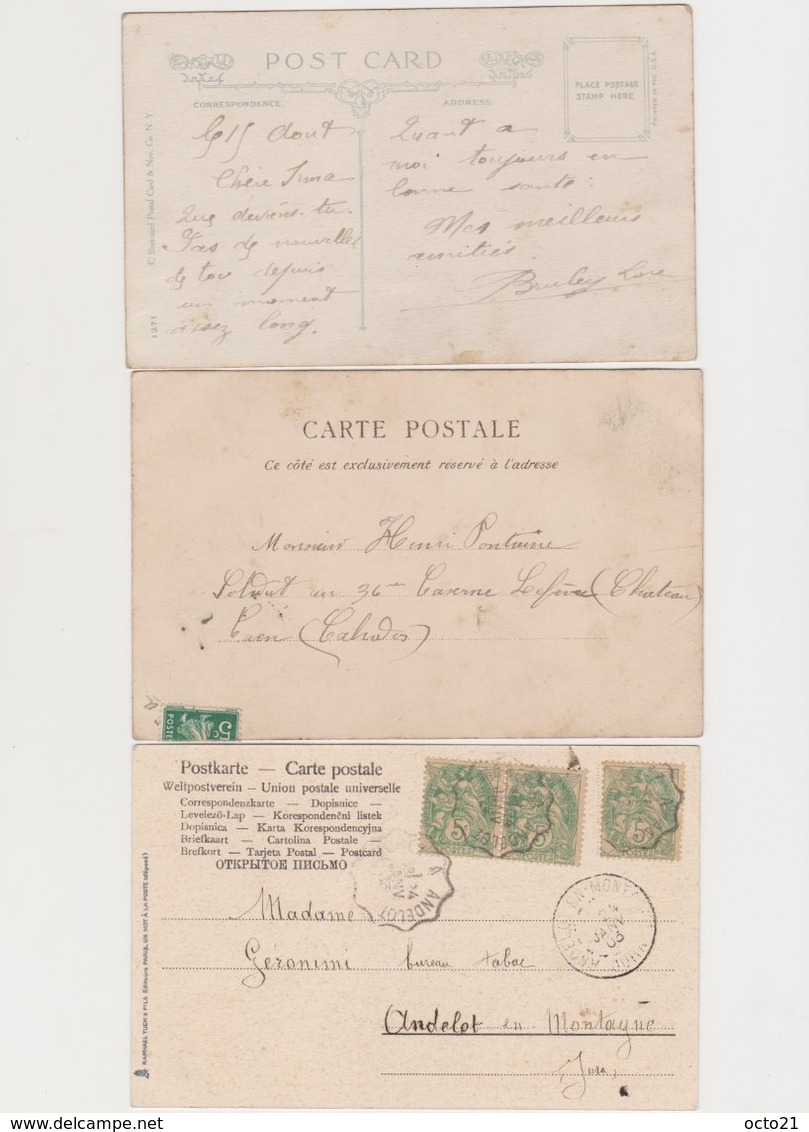 POST CARD
CORRESPONDENCE.
ADDRESS
PLACE POSTAGE
STAMP HERE
PRINTED IN THE U.S.A.
© Illustrated Postal Card & Nov. Co. N. Y.
1371
15 Aout
Chère Irma
Que deviens-tu.
Pas de nouvelles
de toi depuis
un moment
assez long.
Quant a
moi toujours en
bonne santé.
Mes meilleurs
amitiés.
CARTE POSTALE
Ce côté est exclusivement réservé à l'adresse
Monsieur Henri Fontaine
Soldat au 36me Caserne Lefèvre (Chateau)
Caen (Calvados)
5c
POSTES
Postkarte — Carte postale
Weltpostverein — Union postale universelle
Correspondenzkarte — Dopisnice —
Levelező-Lap — Korespondenční listek
Dopisnica — Karta Korespondencyjna
Briefkaart — Cartolina Postale —
Brefkort — Tarjeta Postal — Postcard
ОТКРЫТОЕ ПИСЬМО
RAPHAEL TUCK & FILS Editeurs PARIS. UN MOT À LA POSTE (déposé)
ANDELOT
24
5
POSTES
5
POSTES
5
POSTES
ANDELOT-EN-MONTAGNE
24
JANV
03
Madame
Géronimi bureau tabac
Andelot en Montagne
Jura
octo21